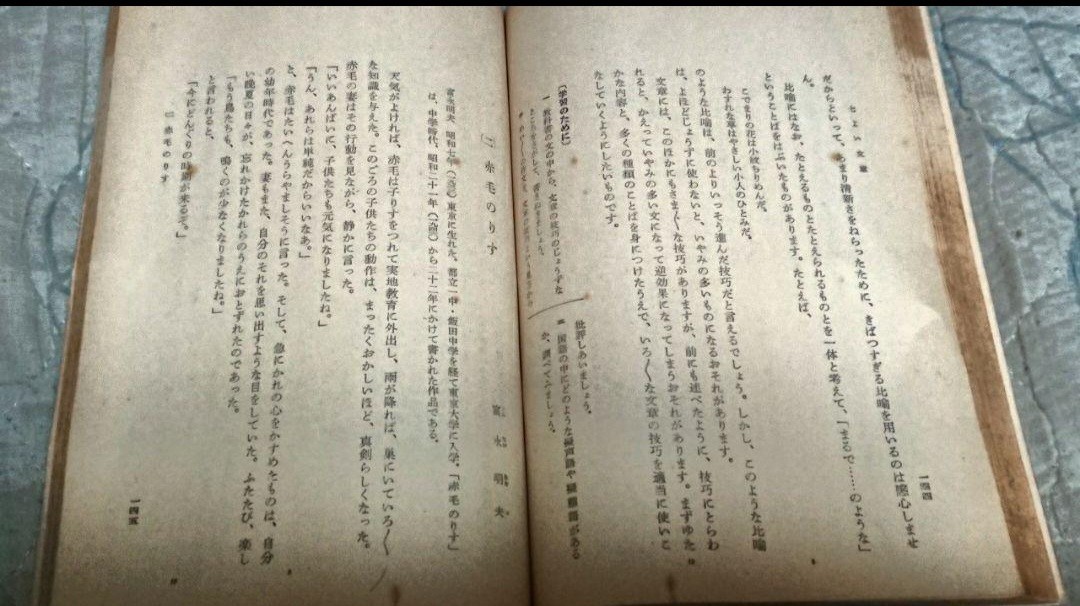 七　よい文章
だからといって、あまり清新さをねらったために、きばつすぎる比喩を用いるのは感心しませ
ん。
比喩にはなお、たとえるものとたとえられるものとを一体と考えて、「まるで……のような」
ということばをはぶいたものがあります。たとえば、
こでまりの花は小紋ちりめんだ。
わすれな草はやさしい小人のひとみだ。
のような比喩は、前のよりいっそう進んだ技巧だと言えるでしょう。しかし、このような比喩
は、よほどじょうずに使わないと、いやみの多いものになるおそれがあります。
文章には、このほかにもさま〴〵な技巧がありますが、前にも述べたように、技巧にとらわ
れると、かえっていやみの多い文になって逆効果になってしまうおそれがあります。まずゆた
かな内容と、多くの種類のことばを身につけたうえで、いろ〳〵な文章の技巧を適当に使いこ
なしていくようにしたいものです。
一四四
5
10
〔学習のために〕
一　教科書の文の中から、文章の技巧のじょうずな
ところをさがして、書きぬきましょう。
批評しあいましょう。
三　国語の中にどのような擬声語や擬態語がある
か、調べてみましょう。
〔二〕　赤毛のりす
富永明夫
富永明夫、昭和七年東京に生れた。都立一中・飯田中学を経て東京大学に入学。「赤毛のりす」
は、中学時代、昭和二十一年から二十二年にかけて書かれた作品である。
天気がよければ、赤毛は子りすをつれて実地教育に外出し、雨が降れば、巣にいていろ〳〵
な知識を与えた。このごろの子供たちの動作は、まったくおかしいほど、真剣らしくなった。
赤毛の妻はその行動を見ながら、静かに言った。
「いいあんばいに、子供たちも元気になりましたね。」
「うん、あれらは単純だからいいなあ。」
と、赤毛はたいへんうらやましそうに言った。そして、急にかれの心をかすめたものは、自分
の幼年時代であった。妻もまた、自分のそれを思い出すような目をしていた。ふたたび、楽し
い晩夏の日々が、忘れかけたかれらのうえにおとずれたのであった。
「もう鳥たちも、鳴くのが少なくなりましたね。」
と言われると、
「今にどんぐりの時期が来るぞ。」
二　赤毛のりす
一四五
5
10